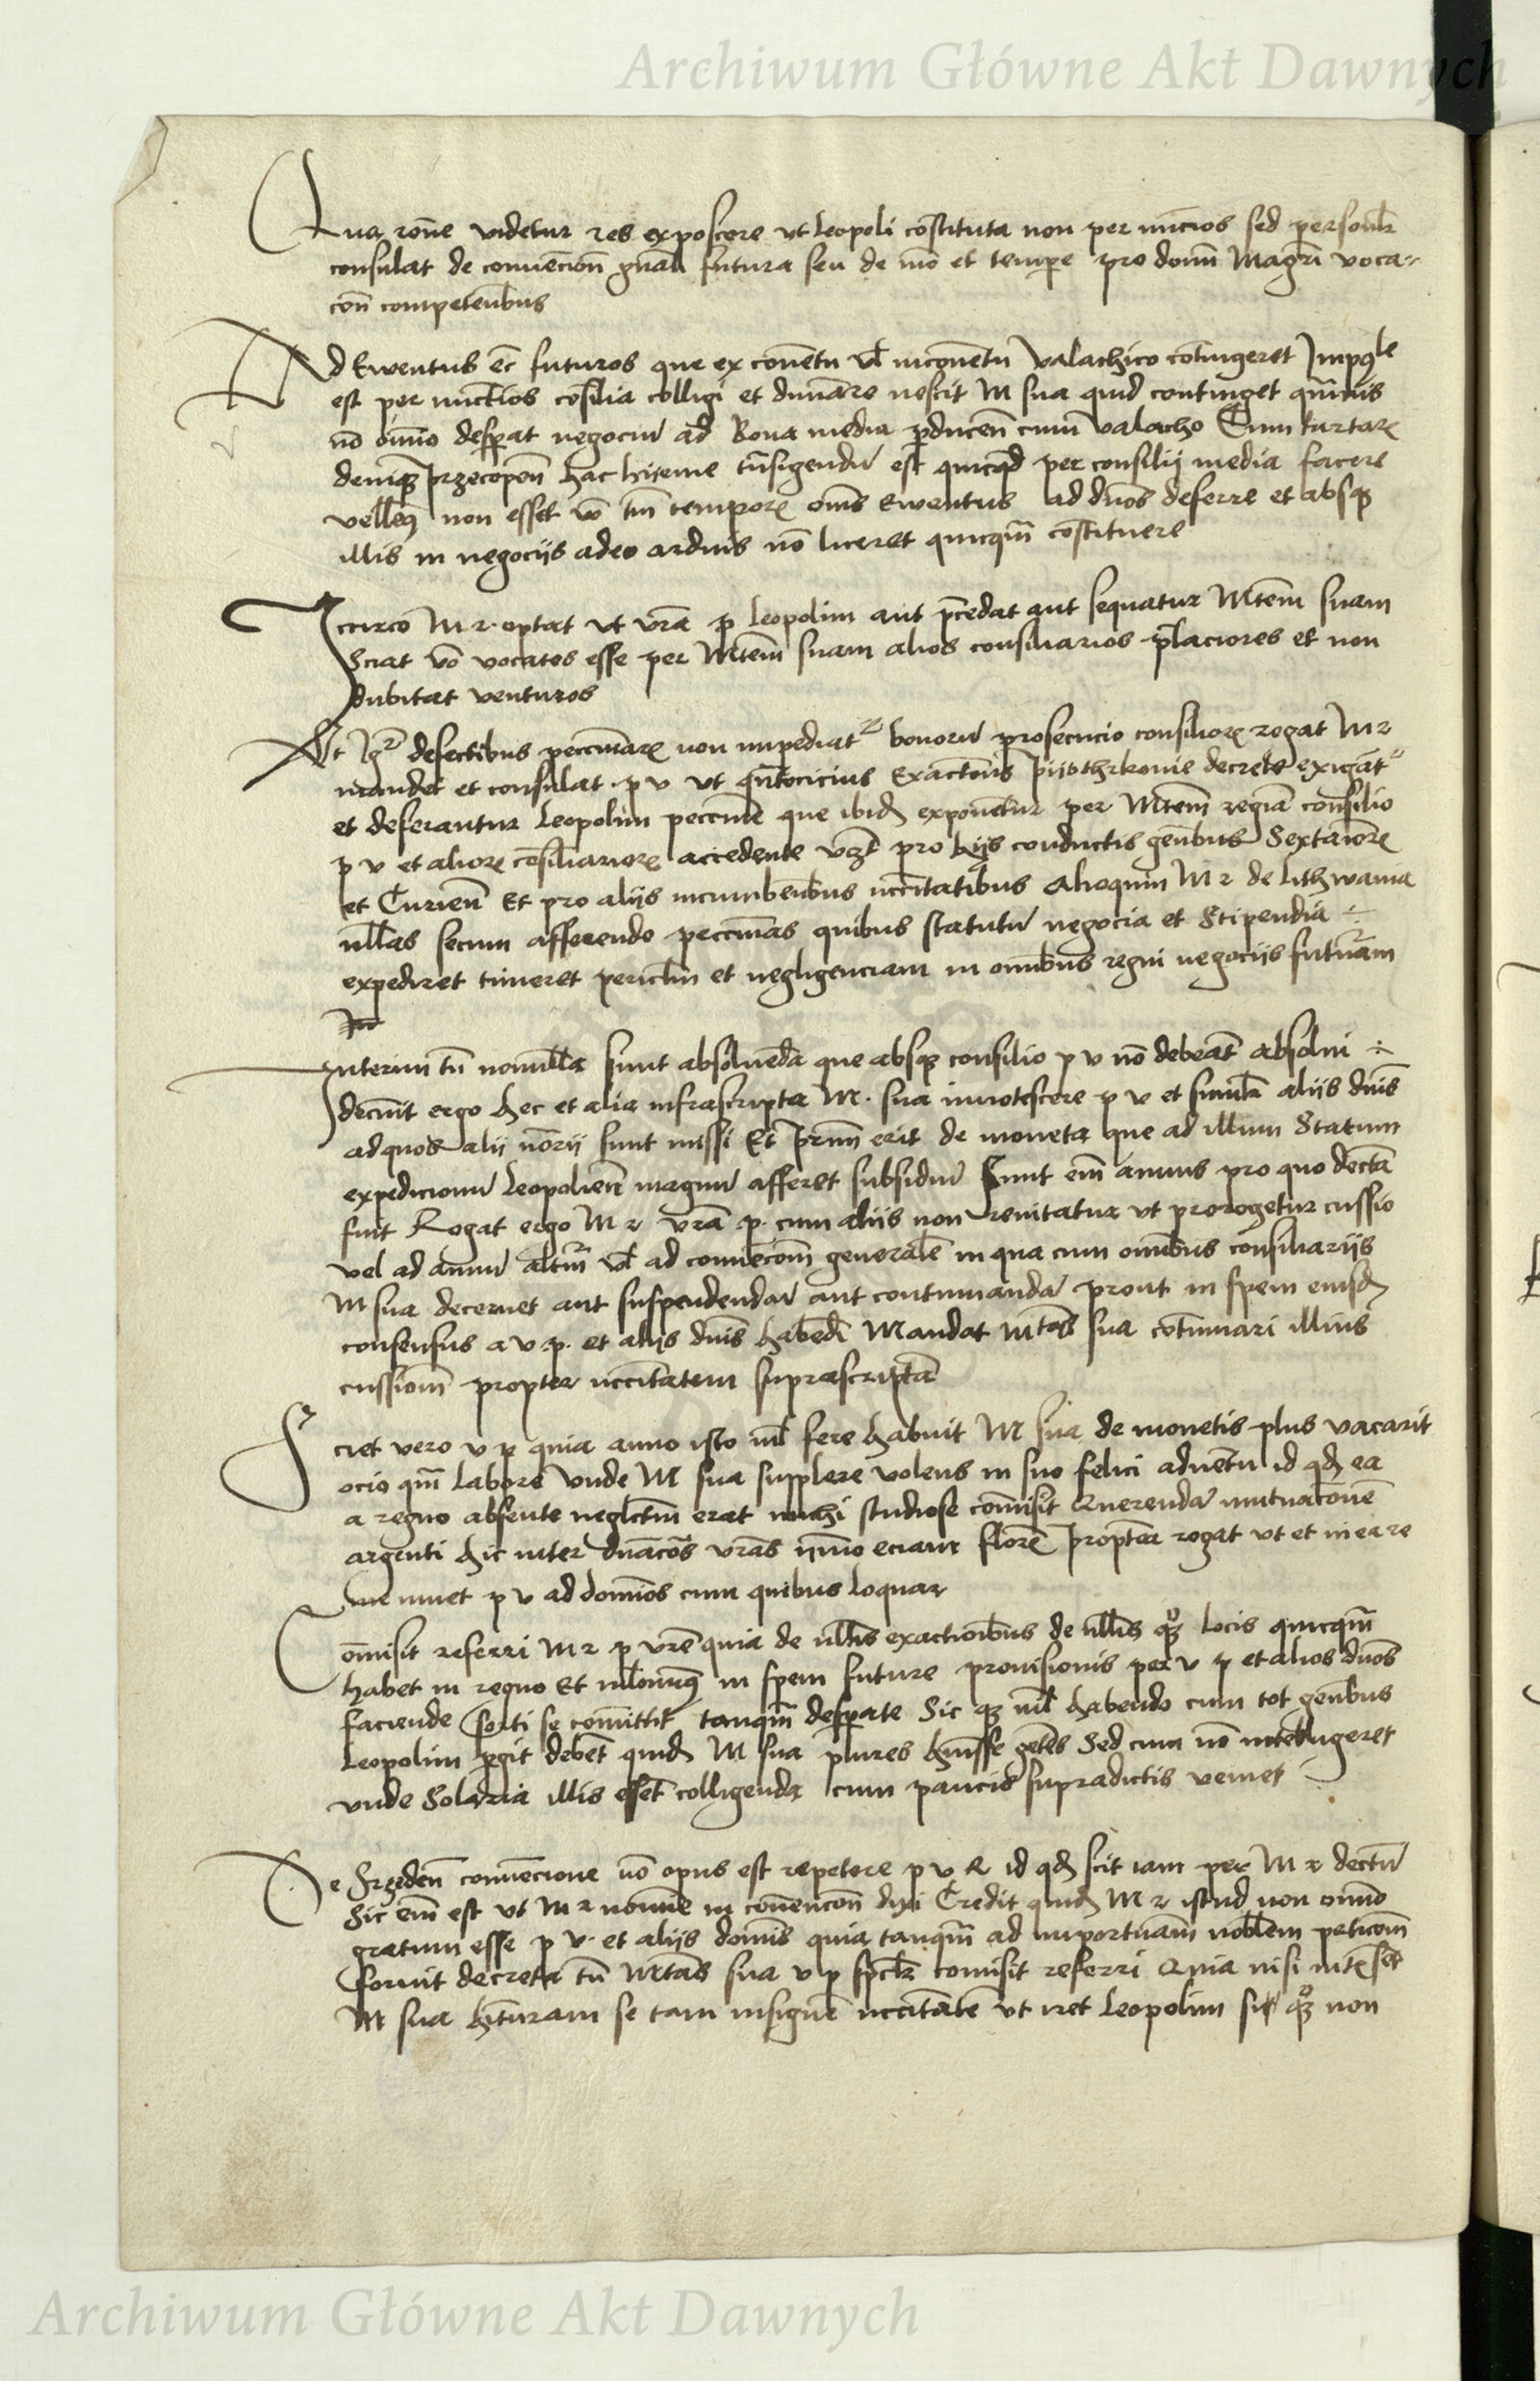 Archiwum Główne Akt Dawnych
Qua rone videtur res exposcere ut leopoli constituta non per nuncios sed personlr
consulat de convencion gnali futura seu de mo et tempe pro domn Magri voca-
con competentibus
Ad Eventus ec futuros que ex conventu vl inconventu valachico contingeret Impqle
est per nuctios consilia colligi et nescit M sua quid continget qmvis
no omno desperat negociu ad Bona media perducen cum valacho Cum turtare
deniq przecopen hac hieme transigendu est quicqd per consilij media facere
velleq non esset vo tm tempore omnis Eventus ad dnos deferre et absq
illis in negociis adeo arduis no liceret quicqm constituere
Iccirco M r optat ut vra p leopolim aut precedat aut sequatur Mtem suam
Sciat vo vocatos esse per Mtem suam alios consiliarios prlaciores et non
dubitat venturos
Ut igr defectibus peccuniare non impediatr bonoru prosecucio consiliore rogat M r
mandet et consulat p v ut qntocicius Exactionis pijothrkovie decrete exigatr
et deferantur leopolim peccunie que ibid exponentur per Mtem regia consilio
p v et aliore consiliariore accedente vzt pro hijs conductis gentibus Sextariore
et Curien Et pro aliis incumbentibus nccitatibus Alioquin M r de Lithwania
ullas secum afferendo peccunias quibus statutu negocia et Stipendia
expediret timeret periclm et negligenciam in omnibus regni negociis futuram
Interim tn nonnulla sunt absolvenda que absq consilio p v no debeat absolvi
decrevit ergo hec et alia infrascripta M. sua innotescere p v et simulr aliis dnis
adquos alii norii sunt missi Et primu erit de moneta que ad illum Statum
expedicionu leopolien magnu afferet subsidiu sunt em annus pro quo decta
fuit Rogat ergo M r vra p. cum aliis non renitatur ut prorogetur cussio
vel ad annu altm vl ad convencom generale in qua cum omnibus consiliariis
M sua decernet aut suspendendam aut continuanda prout in spem eiusd
consensus a v p. et aliis dnis habedi Mandat mtas sua continuari illius
cussiom propter nccitatem suprascripta
Sciet vero v p quia anno isto nil fere habuit M sua de monetis plus vacarit
ocio qm labore Unde M sua supplere volens in suo felici adventu id qd ea
a regno absente neglectm erat michi studiose comisit Querenda mutuacone
argenti hic inter vras ymmo eciam flore propterea rogat ut et in ea re
me iuvet p v ad dominos cum quibus loquar
Comisit referri M r p vre quia de ullis exactionibus de ullis qz locis quicqm
habet in regno Et nlominq in spem future provisionis per v p et alios dnos
faciende sorti se comittit tanqm desperate Sic qz nil habendo cum tot gentibus
leopolim pergit debet quid M sua plures huisse getes Sed cum no intelligeret
unde Solaria illis esset colligenda cum paucis supradictis veniet
De Srzeden convencione no opus est repetere p v R id qd scit iam per M r dectu
Sic em est ut M r nomine in convencon dixi Credit quid M r istud non omno
gratum esse p v. et aliis dominis quia tanqm ad importunam noblem peticom
fuit decreta tn Mtas sua v p spclr comisit referri Quia nisi
M sua hituram se tam insigne nccitate ut iret leopolim sic qz non
Archiwum Główne Akt Dawnych